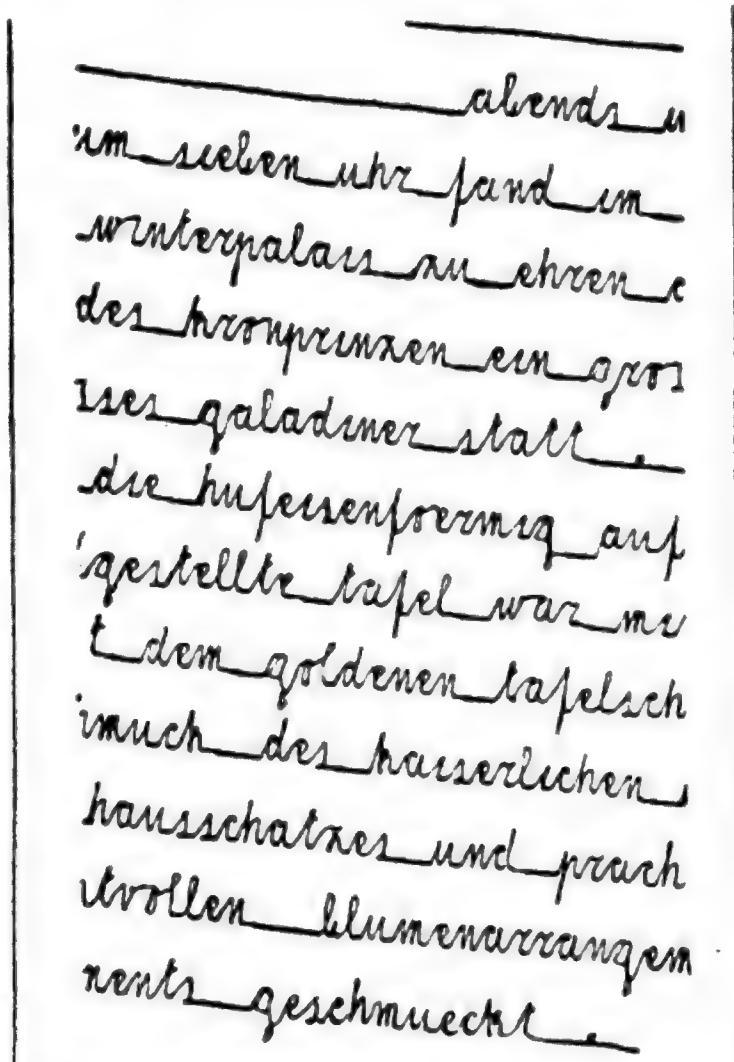 abends u
um sieben uhr fand im
winterpalais zu ehren
des kronprinzen ein gros
sses galadiner statt .
die hufeisenfoermig auf
gestellte tafel war mi
t dem goldenen tafelsch
muck des kaiserlichen
hausschatzes und prach
tvollen blumenarrangem
nents geschmueckt .